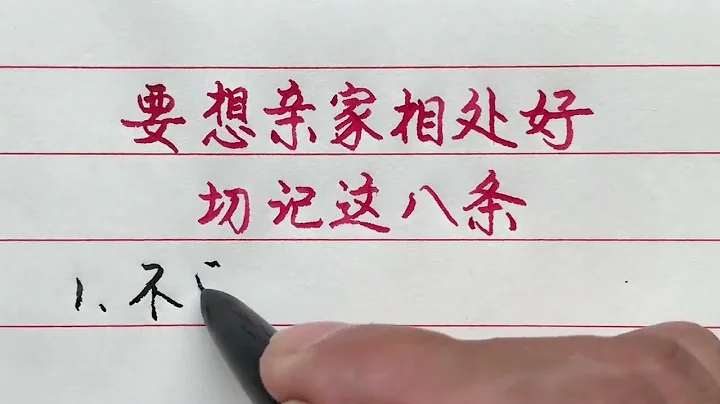 要想亲家相处好
切记这八条
1、不